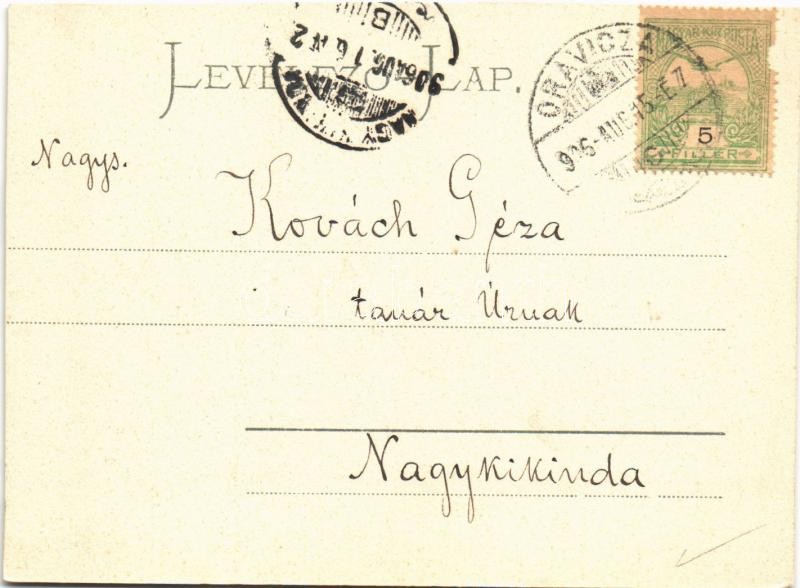 LEVELEZŐ-LAP.
NAGY
906 AUG. 16 N 2
B
ORAVICZA
906 AUG 15 E 7
MAGYAR KIR POSTA
5
FILLÉR
Nagys.
Kovách Géza
tanár Úrnak
Nagykikinda